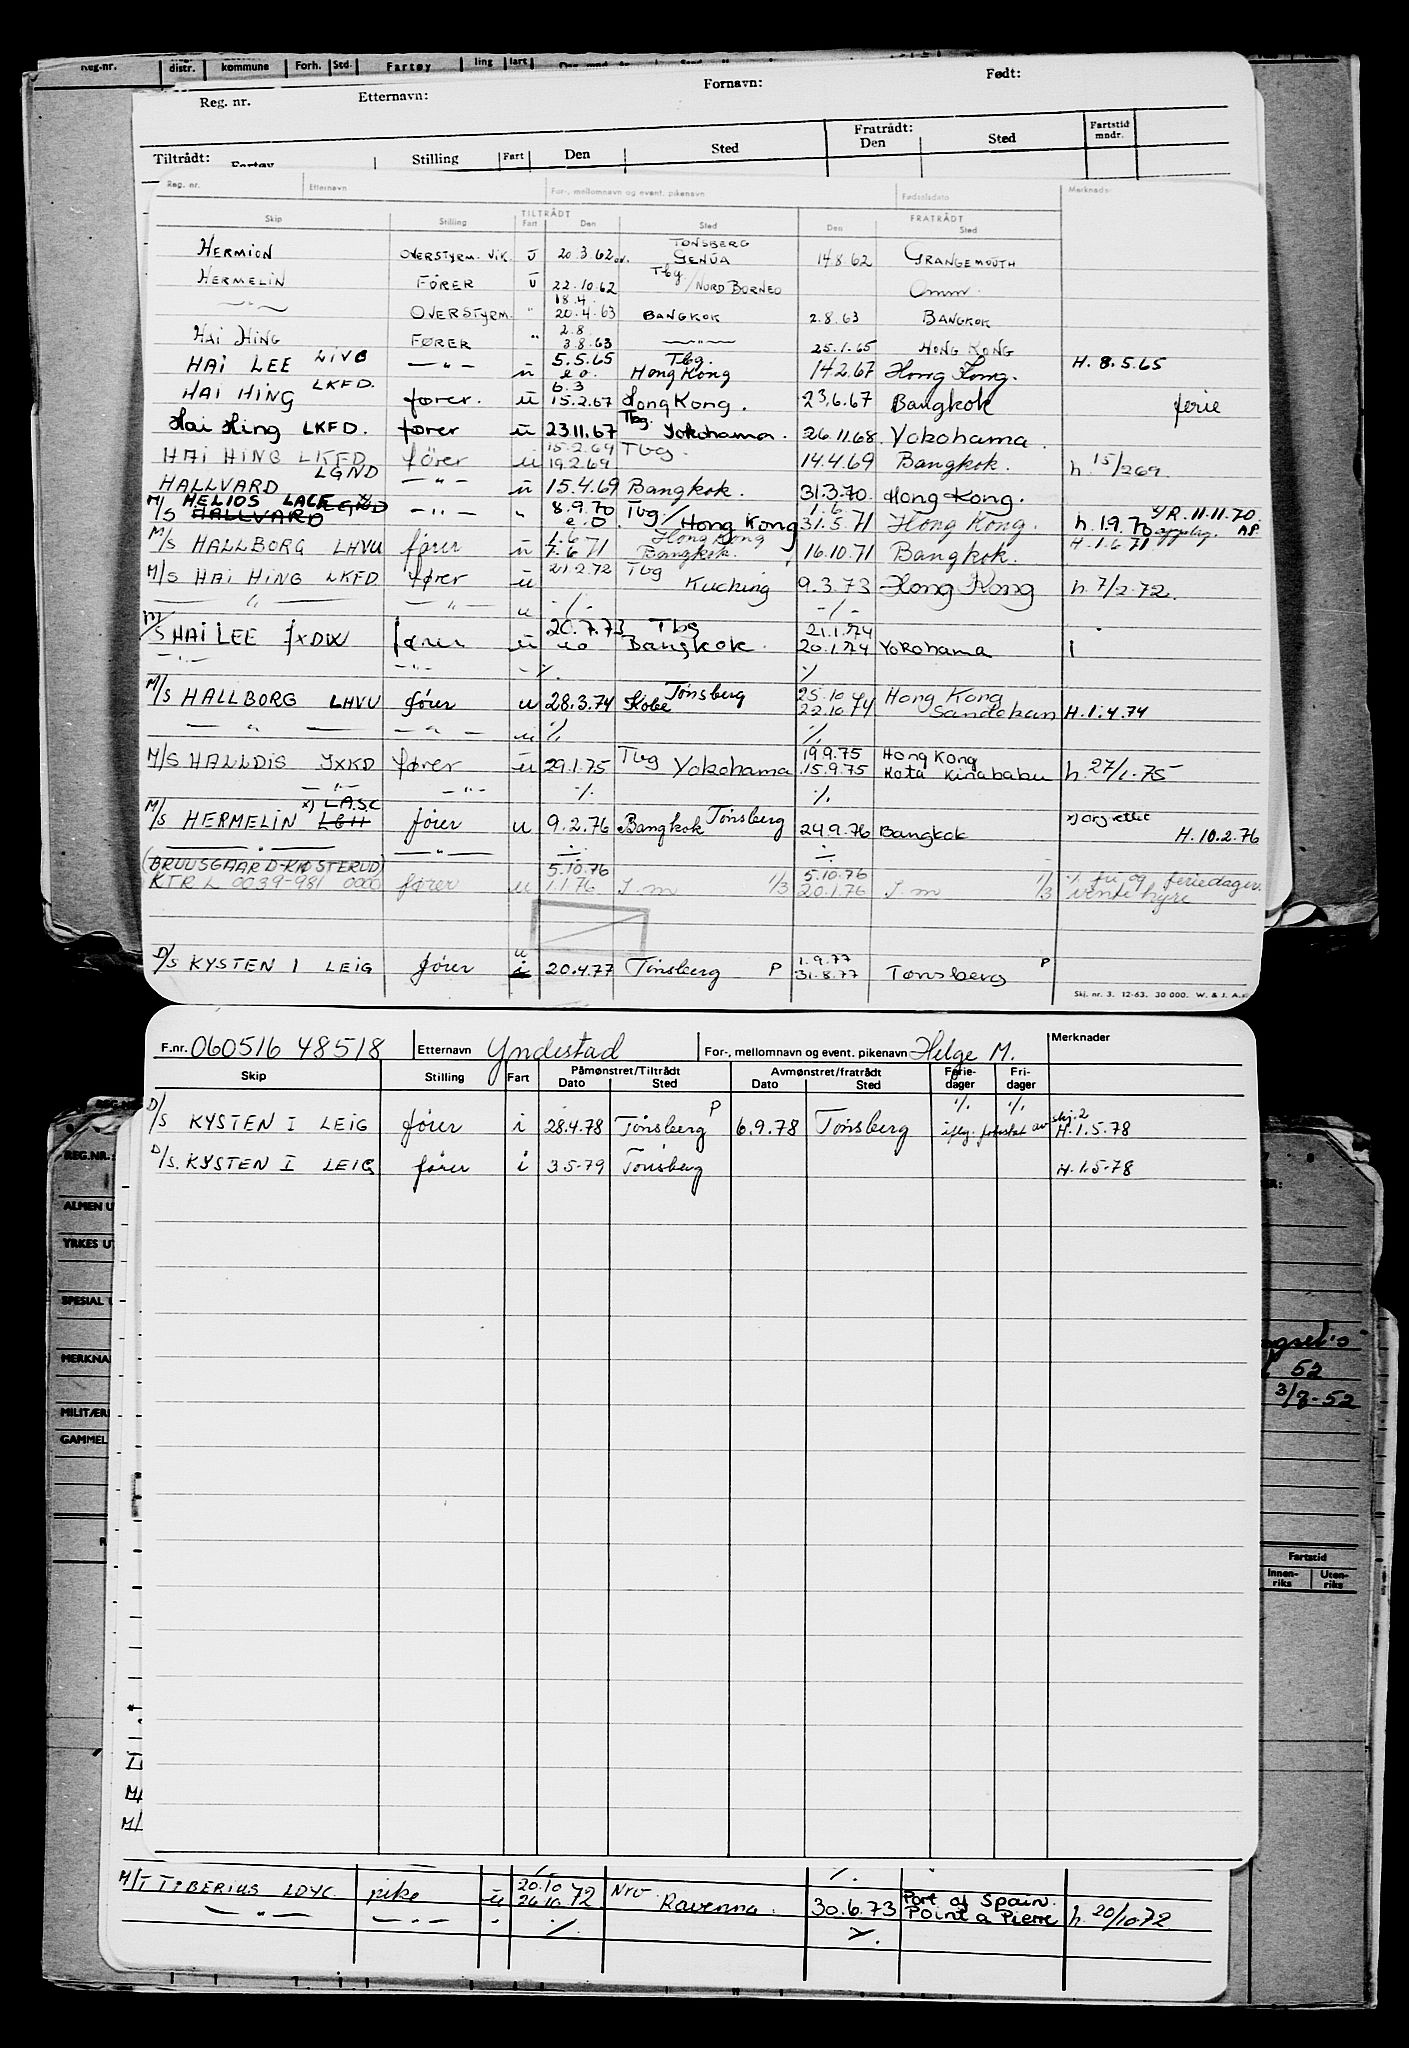 Reg.nr. distr. kommune Forh. Std. Fartøy
Reg. nr. Etternavn: Fornavn: Født:
Tiltrådt: Stilling Fart Den Sted Fratrådt: Den Sted Fartstid mndr.
Reg. nr. Etternavn For-, mellomnavn og event. pikenavn Fødselsdato Merknader
TILTRÅDT FRATRÅDT
Skip Stilling Fart Den Sted Den Sted
HERMION OVERSTYRM. VIK. U 20.3.62 TØNSBERG GENUA 14.8.62 GRANGEMOUTH
HERMELIN FØRER U 22.10.62 Tbg/NORD BORNEO Omm.
— " — OVERSTYRM. " 18.4. 20.4.63 BANGKOK 2.8.63 BANGKOK
HAI HING FØRER " 2.8. 3.8.63 — " — 25.1.65 HONG KONG
HAI LEE LIVB — " — u 5.5.65 e.o. Tbg. Hong Kong 14.2.67 Hong Kong. H. 8.5.65
HAI HING LKFD. fører. u 6.3 15.2.67 Hong Kong. 23.6.67 Bangkok ferie
Hai Hing LKFD. fører u 23.11.67 Tbg. Yokohama. 26.11.68 Yokohama.
HAI HING LKFD fører u 15.2.69 19.2.69 Tbg. 14.4.69 Bangkok. h. 15/2 69.
HALLVARD LGND — " — u 15.4.69 Bangkok. 31.3.70. Hong Kong.
M/S HELIOS LACE HALLVARD LGND — " — " 8.9.70 e.o Tbg/Hong Kong 1.6. 31.5.71 Hong Kong. h. 1.9.70 YR. 11.11.70.
M/S HALLBORG LHVU fører u 1.6. 7.6.71 Hong Kong Bangkok. 16.10.71 Bangkok. H. 1.6.71
M/S HAI HING LKFD fører u 21.2.72 Tbg Kuching 9.3.73 Hong Kong h. 7/2.72.
— " — — " — u -/- -/-
M/S HAI LEE JXDW fører u 20.7.73 e.o Tbg Bangkok. 21.1.74 20.1.74 Yokohama
- " - - " - ·/. ·/.
M/S HALLBORG LHVU fører u 28.3.74 Tønsberg Kobe 25.10 22.10.74 Hong Kong Sandakan H. 1.4.74
— " — — " — u ·/. ·/.
M/S HALLDIS JXKD fører u 29.1.75 Tbg Yokohama 19.9.75 15.9.75 Hong Kong Kota Kinababu h. 27/1.75
— " — — " — ·/. ·/.
M/S HERMELIN x) LASC LGH fører u 9.2.76 Bangkok Tønsberg 24.9.76 Bangkok H. 10.2.76
— " — — " — ·/. ·/.
(BRUUSGAARD-KIØSTERUD) 5.10.76 5.10.76
KTR L 0039-981 0000 fører u 1.1.76 I.m 1/3 20.1.76 I.m 1/3 ·/. fri og feriedager. vente hyre
D/S KYSTEN I LEIG fører u i 20.4.77 Tønsberg P 1.9.77 31.8.77 Tønsberg P
Skj. nr. 3. 12-63. 30 000. W. & J. A.
F.nr. 060516 48518 Etternavn Yndestad For-, mellomnavn og event. pikenavn Helge M. Merknader
Skip Stilling Fart Påmønstret/Tiltrådt Dato Sted Avmønstret/fratrådt Dato Sted Ferie-dager Fri-dager
D/S KYSTEN I LEIG fører i 28.4.78 Tønsberg P 6.9.78 Tønsberg ·/. ·/. skj. 2 H. 1.5.78
D/S. KYSTEN I LEIG fører i 3.5-79 Tønsberg H. 1.5-78
REG.NR.:
ALMEN U
YRKES U
SPESIAL
MERKNA
MILITÆR
GAMMEL
52
3/8-52
Fartstid
Innen-riks Uten-riks
M/T TIBERIUS LDYC. u 20.10 26.10.72 Ravenna. 30.6.73 Port of Spain. Point a Pierre h. 20/10 72
— " — — " — - ·/. ·/.